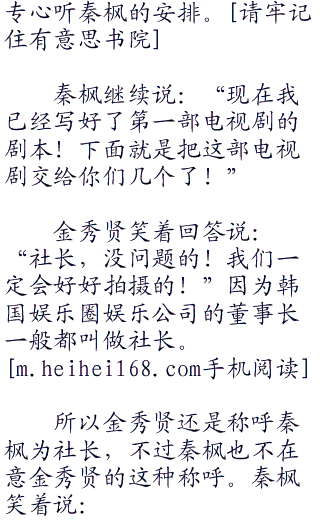 专心听秦枫的安排。[请牢记
住有意思书院]
秦枫继续说：“现在我
已经写好了第一部电视剧的
剧本！下面就是把这部电视
剧交给你们几个了！”
金秀贤笑着回答说：
“社长，没问题的！我们一
定会好好拍摄的！”因为韩
国娱乐圈娱乐公司的董事长
一般都叫做社长。
[m.heihei168.com手机阅读]
所以金秀贤还是称呼秦
枫为社长，不过秦枫也不在
意金秀贤的这种称呼。秦枫
笑着说：